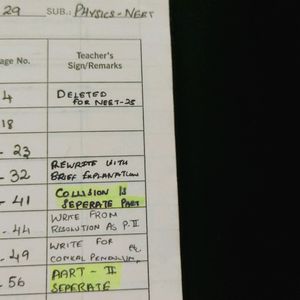 29 SUB.: PHYSICS - NEET
age No. Teacher's
Sign/Remarks
4 DELETED
FOR NEET-25
18
- 23
- 32 REWRITE WITH
BRIEF EXPLANATION
- 41 COLLISION IS
SEPERATE PART
- 44 WRITE FROM
RESOLUTION AS P. II
- 49 WRITE FOR
CONICAL PENDULUM,
- 56 PART - II
SEPERATE